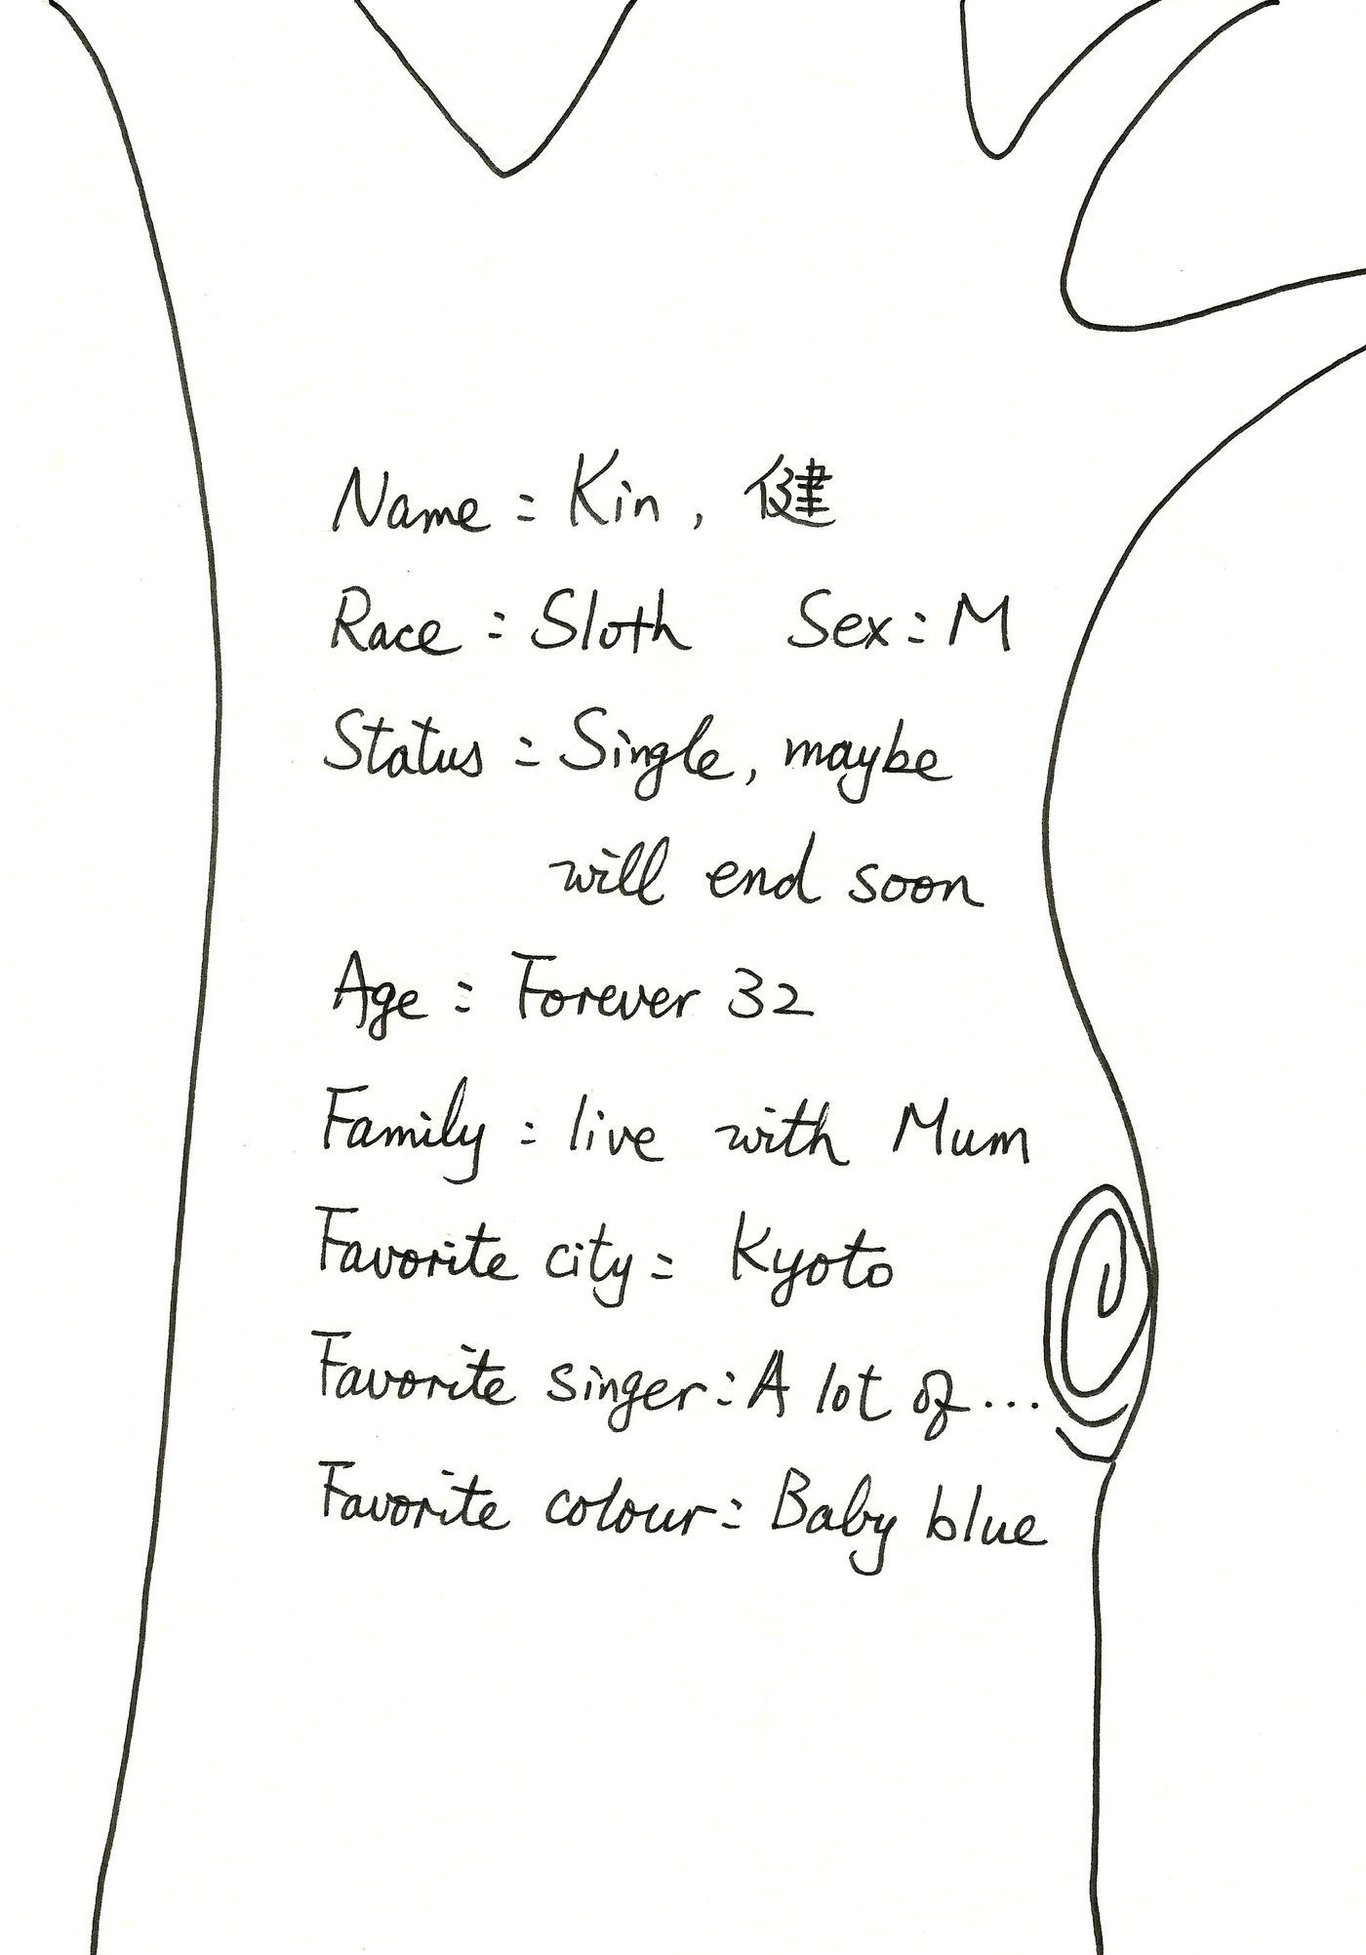 Name : Kin , 健
Race : Sloth Sex : M
Status : Single, maybe
will end soon
Age : Forever 32
Family : live with Mum
Favorite city : Kyoto
Favorite singer : A lot of ...
Favorite colour : Baby blue